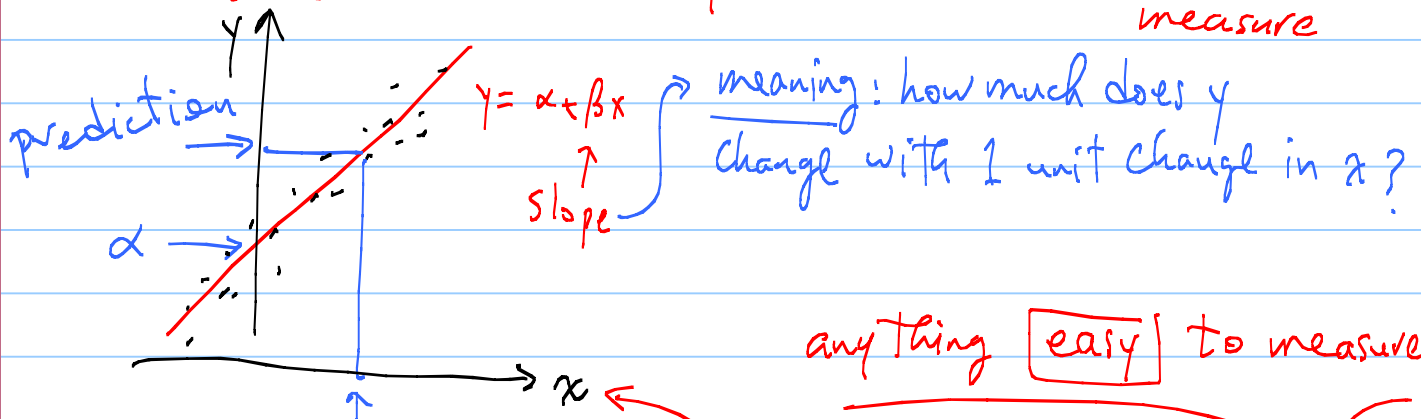 measure
y
prediction
y = α + βx
meaning: how much does y
change with 1 unit change in x?
slope
α
anything easy to measure
x